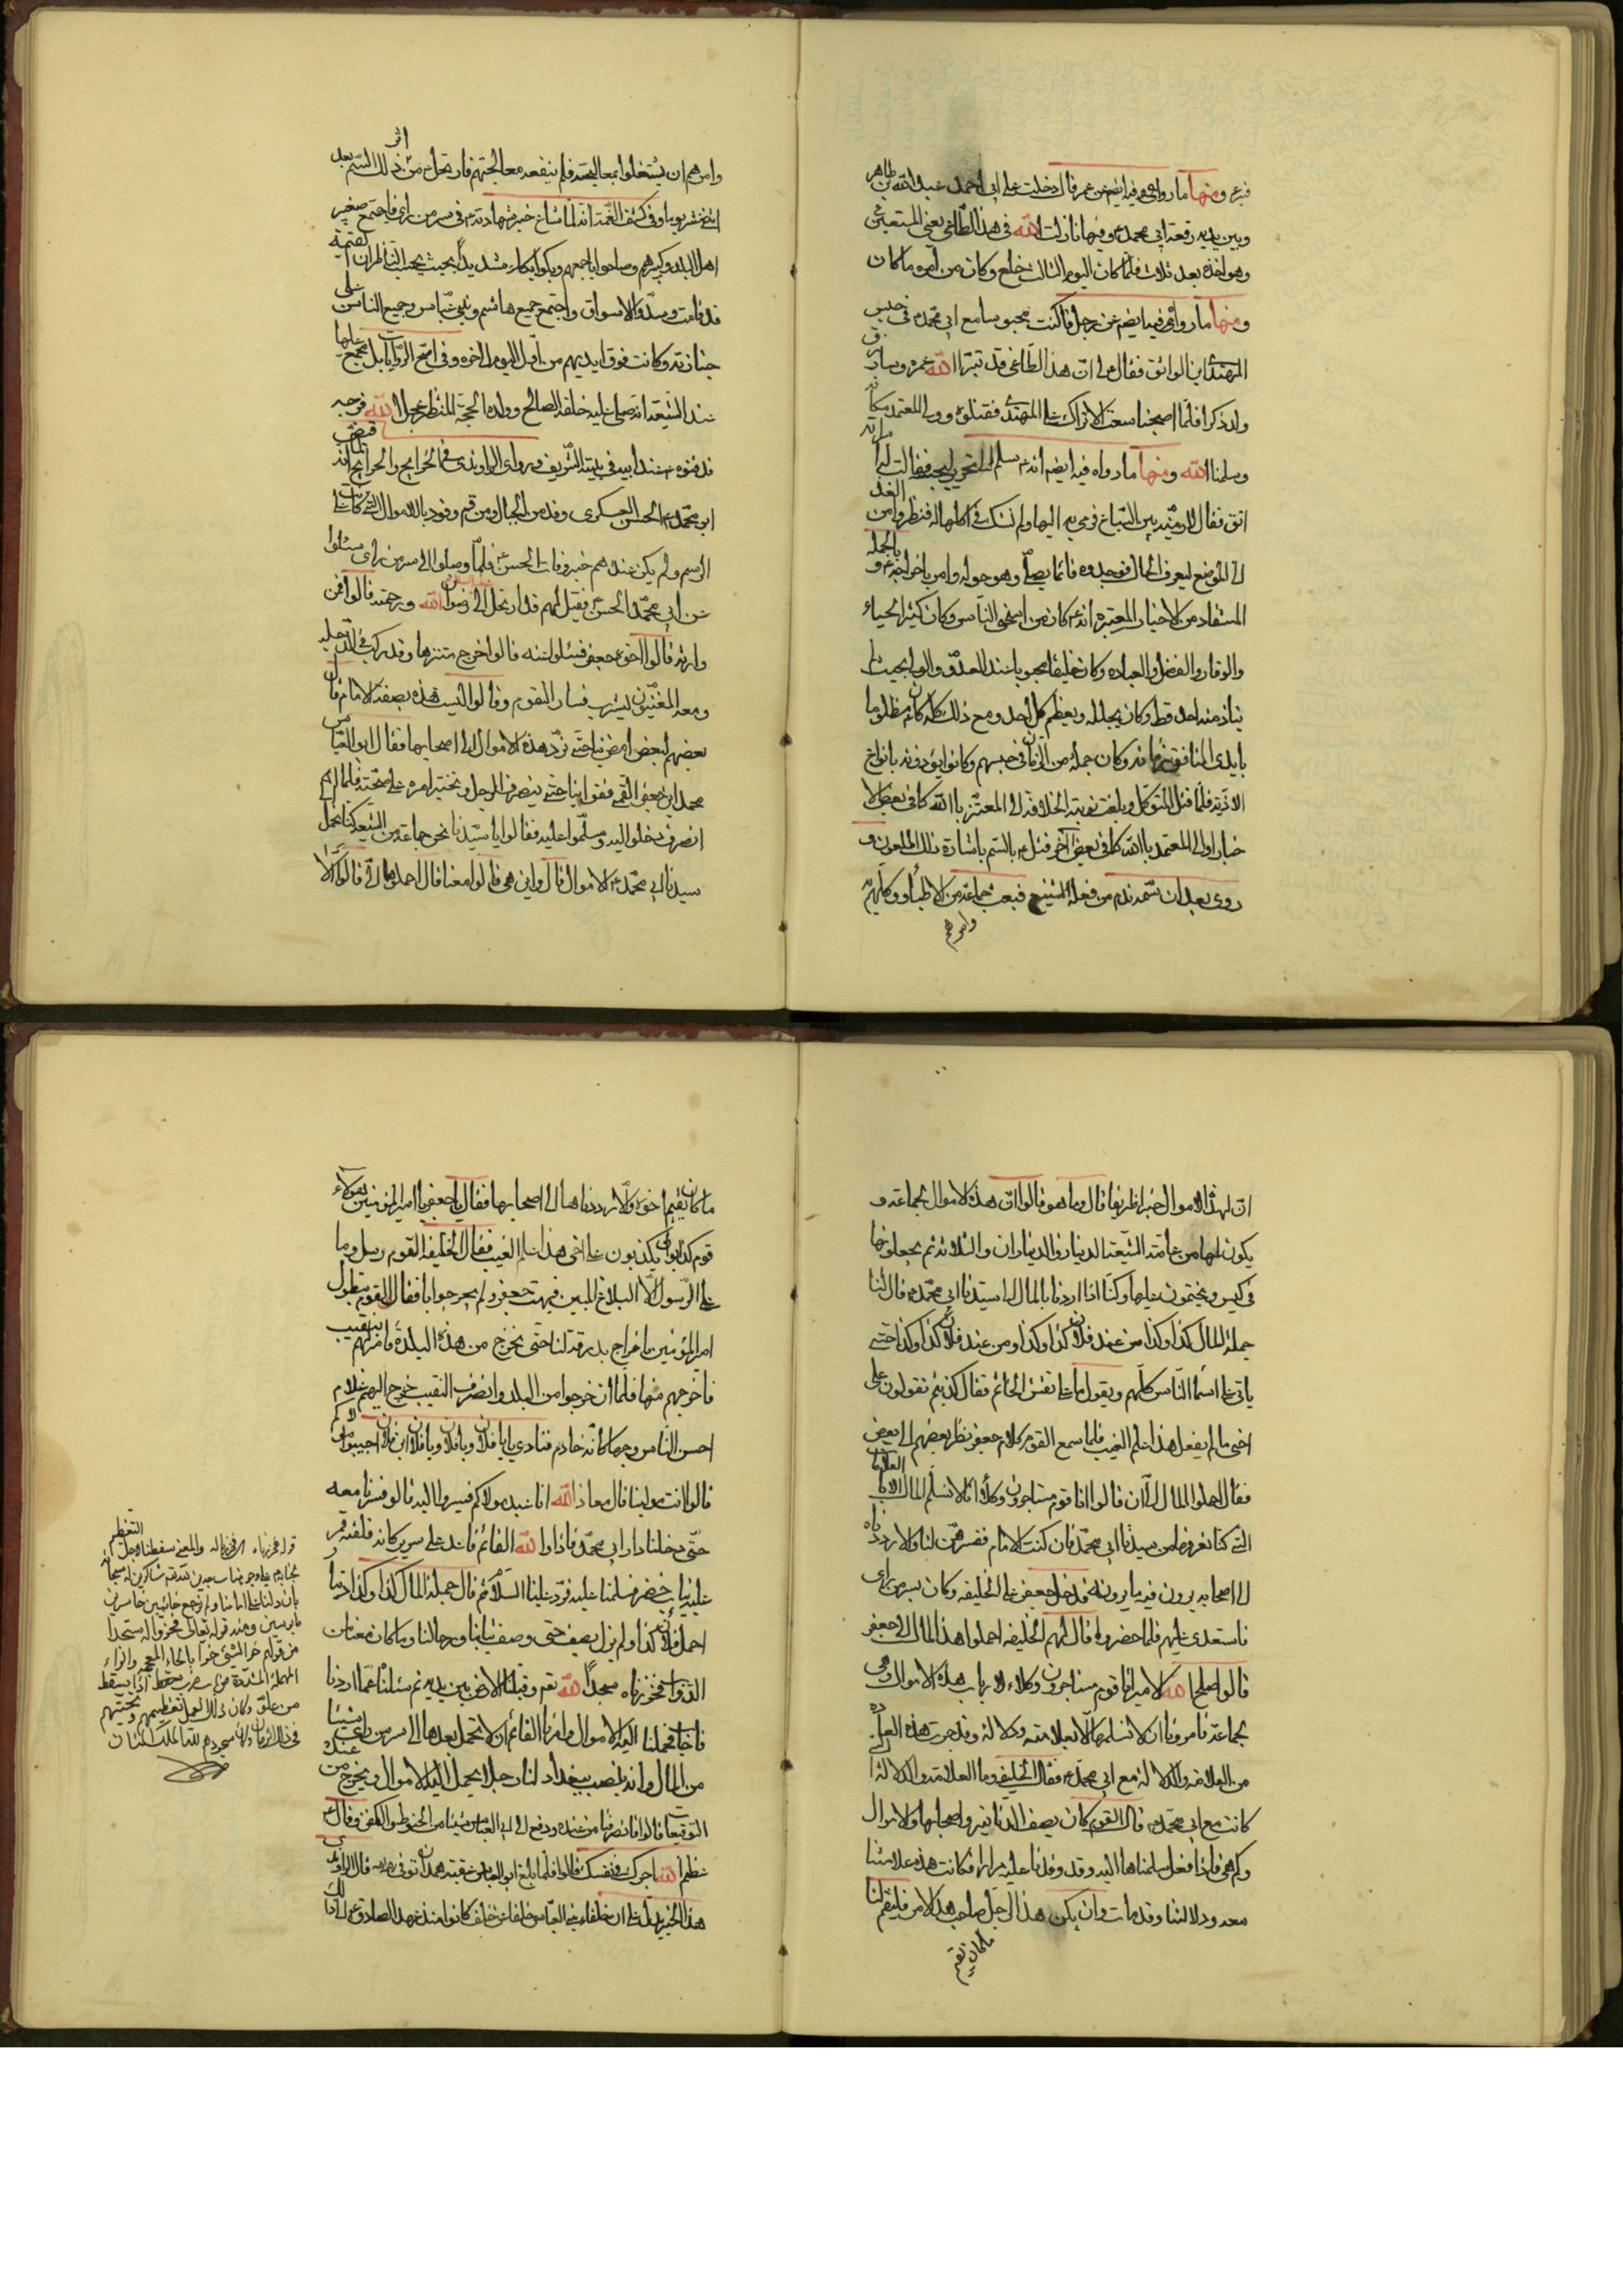 فيه ع ومنها ما رواه فيه ايضا عن عمر قال دخلت على ابى احمد عبيد الله بن طاهر
وبين يديه رقعة ابى محمد ع وفيها نازلت الله فى هذا الطاغى يعنى المستعين
وهو اخذه بعد ثلاث فلما كان اليوم الثالث خلع وكان من امره ما كان
ومنها ما رواه فيه ايضا عن رجل قال كنت محبوسا مع ابى محمد ع فى حبس
المهتدى ابن الواثق فقال لى ان هذا الطاغى قد تبرا الله عمره وسارزق
ولد ذكرا فلما اصبحنا سعت الاتراك على المهتدى فقتلوه وولى المعتمد مكانه
وسلمنا الله ومنها ما رواه فيه ايضا انه ع سلم الى نحرير فقالت له امراته
اتق فقال لارمينه بين السباع فرمى به اليها ولم يشك فى اكلها له فنظروا من الغد
الى الموضع ليعرف الحال فوجدوه قائما يصلى وهو حوله وامر باخراجه ع و بالجمله
المستفاد من الاخبار المعتبره انه ع كان من اسخى الناس وكان كثير الحياء
والوقار والفضل والعباده وكان خليقا محبوبا عند العدو والولى بحيث لم
يتأذ منه احد قط وكان يجلله ويعظم كل احد ومع ذلك كله كان ع مظلوما
بايدى المنافقين زمانه وكان جملة من الزمان فى حبسهم وكانوا يؤذونه بانواع
الاذيه فلما قتل المتوكل وبلغت نوبة الخلافة الى المعتز باالله كما فى بعض الا
خبار او الى المعتمد باالله كما فى بعض آخر قتل ع بالسم باشارة ذلك الملعون و
روى بعد ان سمه ندم من فعله الشنيع فبعث جماعة من الاطباء ووكلهم به
وامرهم
وامرهم ان يشتغلوا بمعالجته فلم ينفعه معالجتهم فارتحل ع من اثر ذلك السم بعد
اثنى عشر يوما وفى كشف الغمة انه لما شاع خبر شهادته ع فى سر من راى فاجتمع صغير
اهل البلد وكبيرهم وصاحوا باجمعهم وبكوا بكاء شديدا بحيث يحسب الناظر ان القيمة
قد قامت وسدوا الاسواق واجتمع جميع هاشم وبنى عباس وجميع الناس على
جنازته وكانت فوق ايديهم من اقبل اليوم الى اخره وفى اصح الروايات بل مجمع عليها
عند الشيعة انه صلى عليه خلفه الصالح وولده الحجة المنتظر عجل الله فرجه
فدفنوه عند ابيه فى بيته الشريف وروى الراوندى فى الخرايج والجرايح انه لما قبض
ابو محمد ع الحسن العسكرى وفد من الجبال ومن قم وفود بالاموال التى كانت على
الرسم ولم يكن عندهم خبر وفات الحسن ع فلما وصلوا الى سر من راى سئلوا
عن ابى محمد الحسن ع فقيل لهم قد ارتحل الى رضوان الله ورحمته قالوا فمن
وارثه قالوا اخوه جعفر فسئلوا عنه قالوا خرج متنزها وقد ركب فى الدجله
ومعه المغنيون ليشرب فسار القوم وقالوا اليست هذه بصفة الامام قال
بعضهم لبعض امض بنا حتى نرد هذه الاموال الى اصحابها فقال ابو العباس
محمد ابن جعفر القمى فقوا بنا حتى ينصرف الرجل ونختبر امره على صحته فلما
انصرف دخلوا اليه وسلموا عليه فقالوا يا سيدنا نحن جماعة من الشيعه كنا نحمل
سيدنا ابى محمد ع الاموال قال واين هى قالوا معنا قال احملوها الى قالوا لا
ان لهذا الاموال خبرا ظريفا قال وما هو قالوا ان هذه الاموال بجماعة و
يكون لها من عامة الشيعة الدينار والديناران والثلاثة ثم يجعلونها
فى كيس ويختمون عليها وكنا اذا اردنا بالمال الى سيدنا ابى محمد ع قال لنا
جملة المال كذا وكذا من عند فلان كذا وكذا ومن عند فلان كذا وكذا حتى
ياتى على اسماء الناس كلهم ويقول ما على نقش الخاتم فقال كذبتم تقولون على
اخى ما لم يفعل هذا علم الغيب فلما سمع القوم كلام جعفر نظر بعضهم الى بعض
فقال احملوا المال الى الان قالوا انا قوم مستاجرون وكلاء انا لا نسلم المال الا بالعلامات
التى كنا نعرفها من سيدنا ابى محمد فان كنت الامام ففسرهن لنا والا رددناه
الى اصحابه يرون فيه ما يرونه فدخل جعفر على الخليفه وكان بسر من راى
فاستعدى عليهم فلما حضروا قال لهم الخليفه احملوا هذا المال الى جعفر
قالوا اصلح الله الامير انا قوم مستاجرون وكلاء لارباب هذه الاموال وهى
بجماعة فامرونا ان لا نسلمها الا بعلامته ودلالة وقد جرت هذه العادة
من العلامه والدلالة مع ابى محمد ع فقال الخليفة وما العلامة والدلالة التى
كانت مع ابى محمد ع قال القوم كان يصف الدنانير واصحابها والاموال
وكم هى فاذا فعل سلمناها اليه وقد وفدنا عليه مرارا فكانت هذه علامتنا
معه ودلالتنا وقد مات وان يكن هذا الرجل صاحب هذا الامر فليقم لنا
ما كان يقيم
ما كان يقيم اخوه والا رددناها الى اصحابها فقال يا جعفر يا امير المؤمنين هؤلاء
قوم كذابون يكذبون على اخى هذا علم الغيب فقال الخليفه القوم رسل وما
على الرسول الا البلاغ المبين فبهت جعفر ولم يحر جوابا فقال القوم يتطول
امير المؤمنين باخراج بدرقة لنا حتى نخرج من هذه البلدة فامر لهم بنقيب
فاخرجهم منها فلما ان خرجوا من البلد وانصرف النقيب خرج اليهم غلام
احسن الناس وجها كانه خادم فنادى يا فلان ويا فلان ويا فلان ابن فلان اجيبوا مولاكم
قالوا انت مولينا قال معاذ الله انا عبد مولاكم فسيروا اليه قالوا فسرنا معه
حتى دخلنا دار ابى محمد فاذا والله القائم قاعد على سرير كانه فلقة قمر
عليه ثياب خضر فسلمنا عليه فرد علينا السلام ثم قال جملة المال كذا وكذا دينارا
احمل فلان كذا ولم يزل يصف حتى وصف ثيابنا ورحالنا وما كان معنا من
الدواب فخررناه سجدا لله نعم وقبلنا الارض بين يديه ثم سئلنا عما اردنا
فاجاب فحملنا اليه الاموال وامرنا القائم ان لا نحمل بعدها الى سر من راى شيئا
من المال وانه ينصب ببغداد لنا رجلا يحمل اليه الاموال ويخرج من عنده
التوقيعات قالوا فانصرفنا من عنده ودفع الى ابى العباس شيئا من الحنوط والكفن وقال
عظم الله اجرك فى نفسك قالوا فلما بلغ ابو العباس عقبة همدان توفى رحمه الله قال الراوى
هذا الخبر يدل على ان خلفاء بنى العباس خلفا عن خلف كانوا منذ عهد الصادق ع الى ذلك
قوله فخررناه اى فخررنا له والمعنى سقطنا لاجل التعظيم
بان دلنا على امامنا ولم نرجع خائبين خاسرين
مايوسين ومنه قوله تعالى فخروا له سجدا
من قولهم خر الشئ خرا بالخاء المعجمة والراء
المهملة المشددة من باب ضرب سقط اذا يسقط
من علو وكان ذلك لعمل تعظيمهم وتحيتهم
فى ذلك الزمان والا السجود هو لله الملك المنان